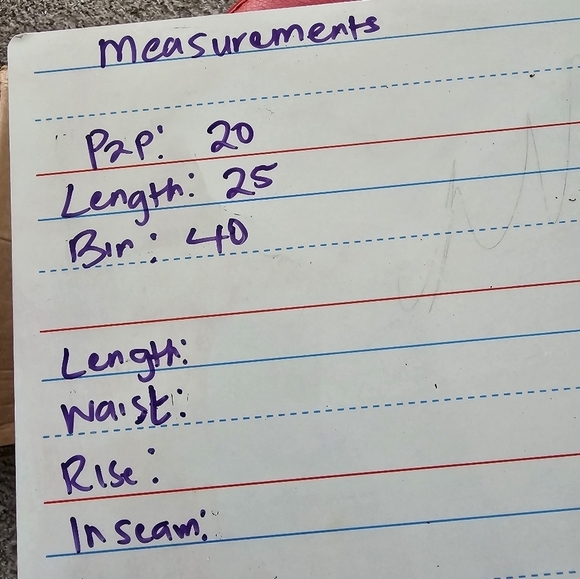 Measurements
P2P: 20
Length: 25
Bin: 40
Length:
Waist:
Rise:
Inseam: